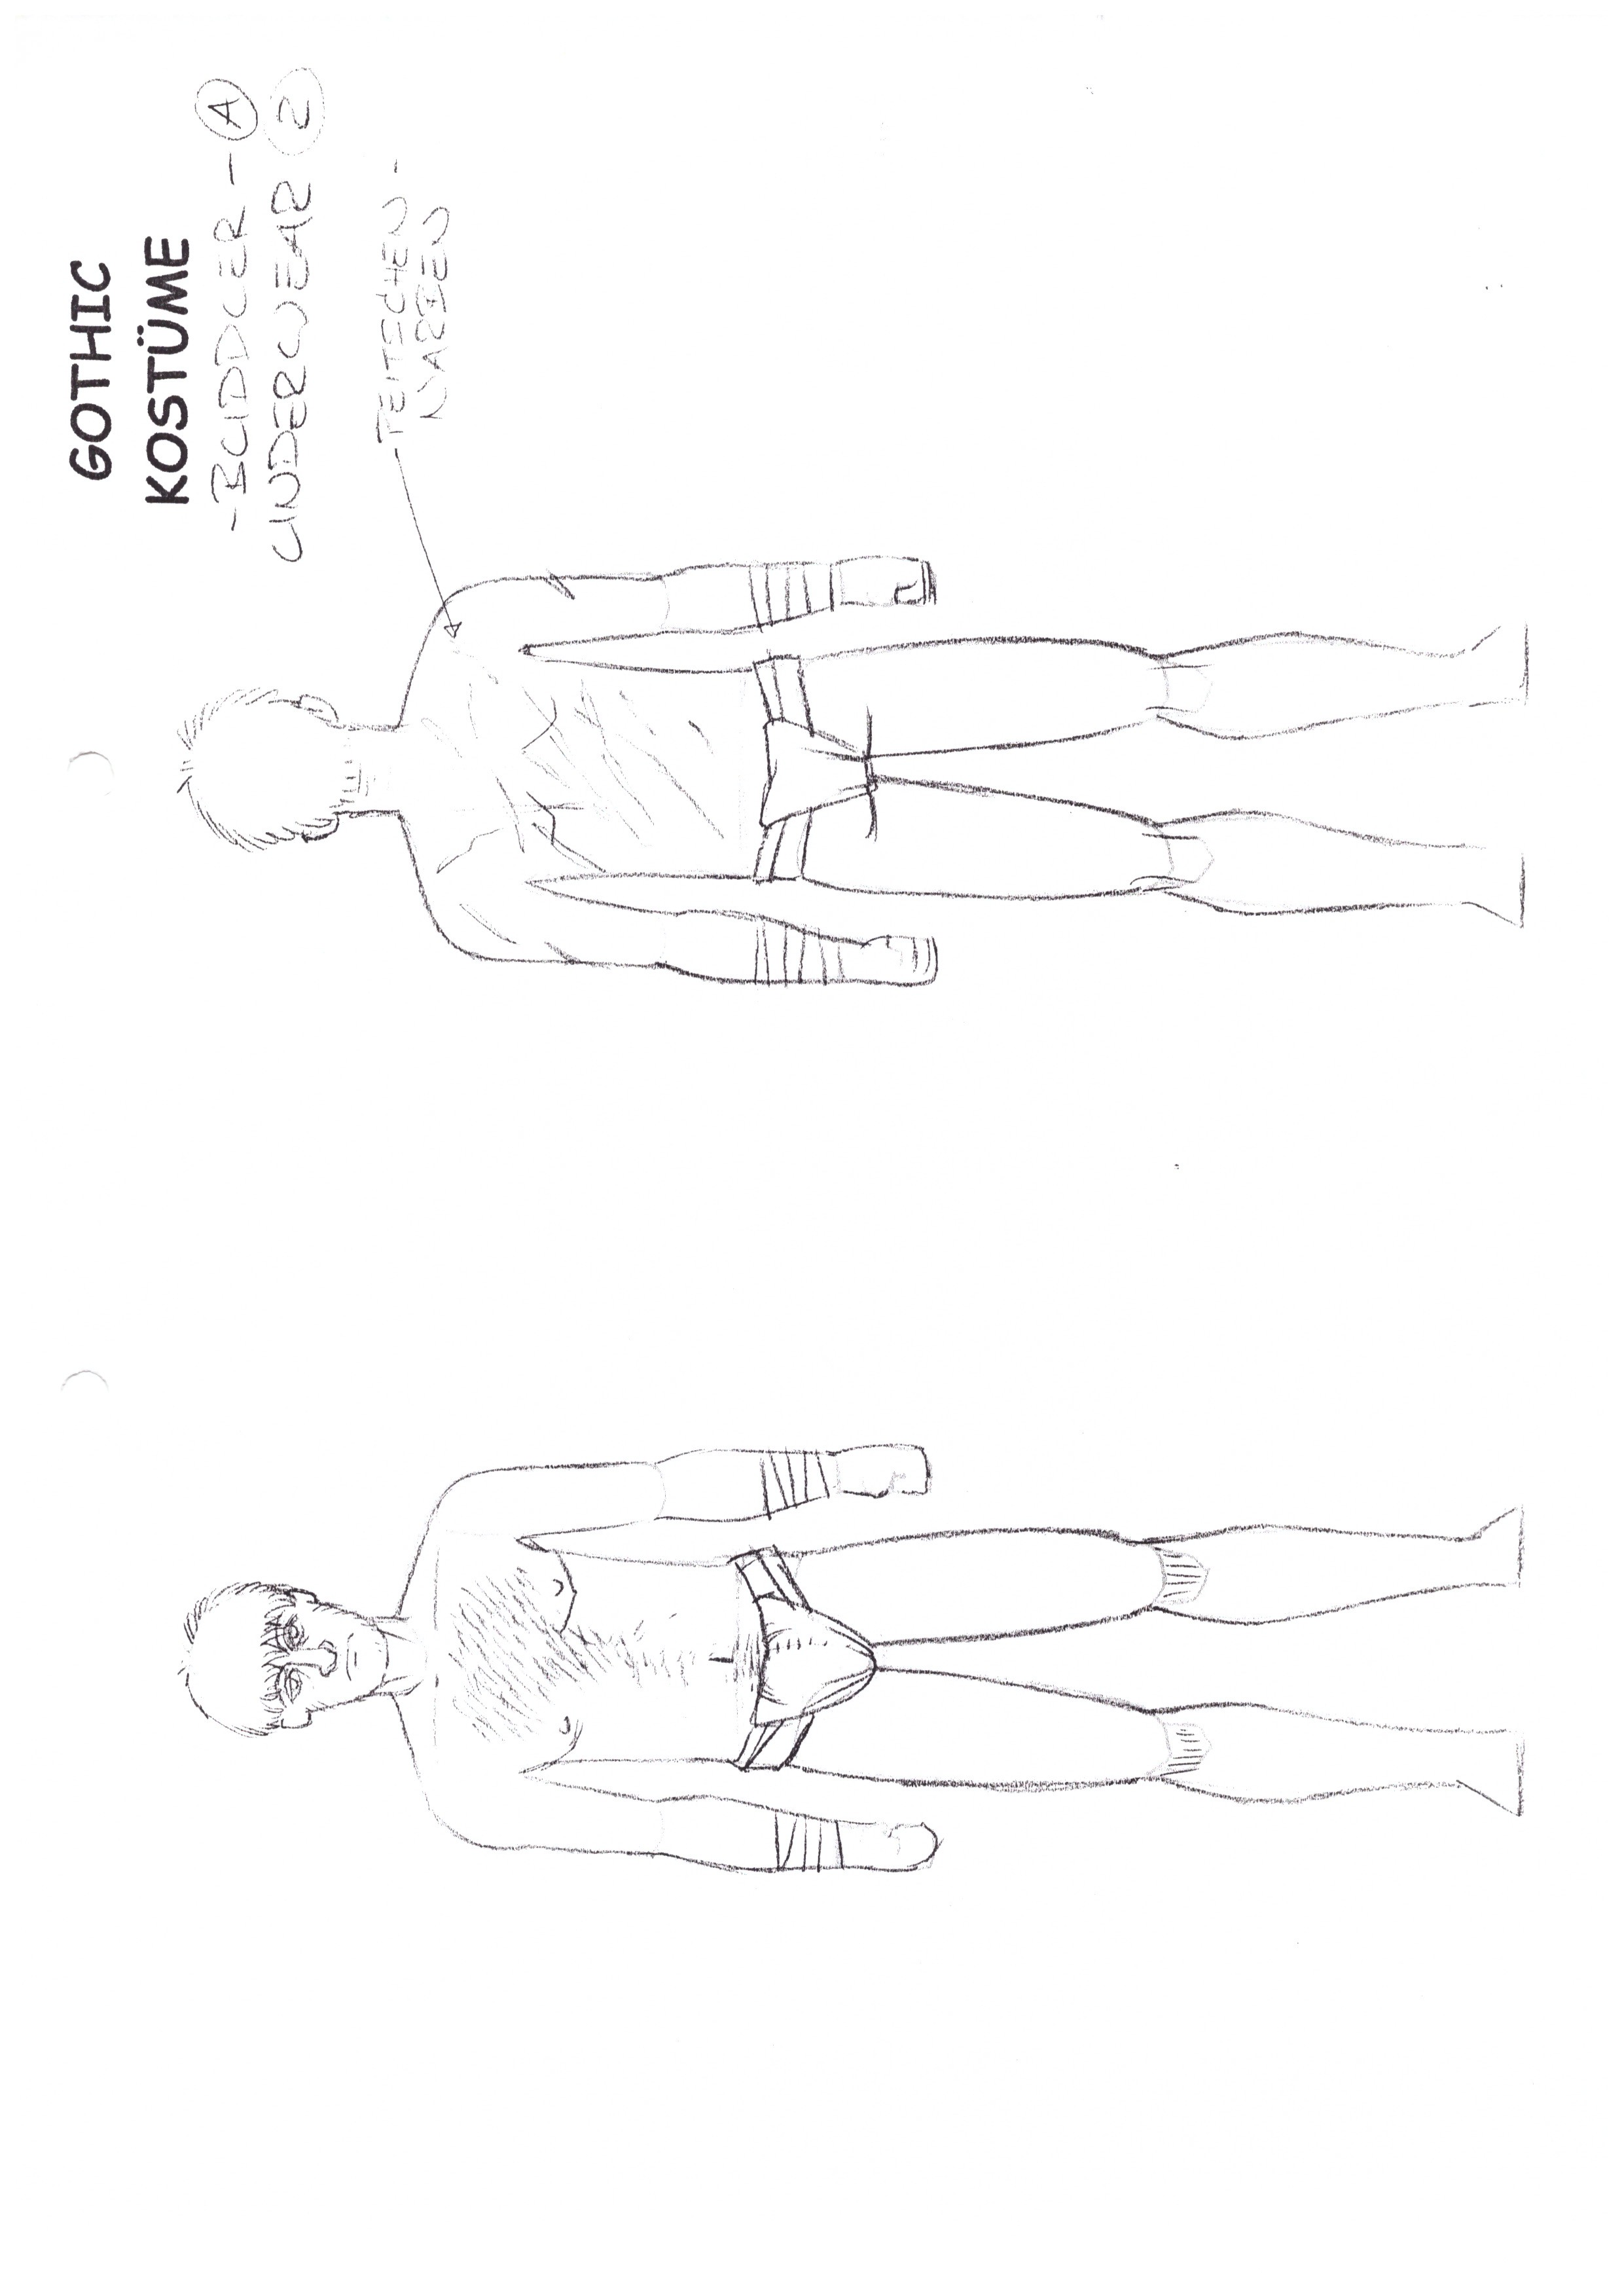 GOTHIC
KOSTÜME
-BUDDLER- A
UNDERWEAR 2
-PEITSCHEN-
NARBEN